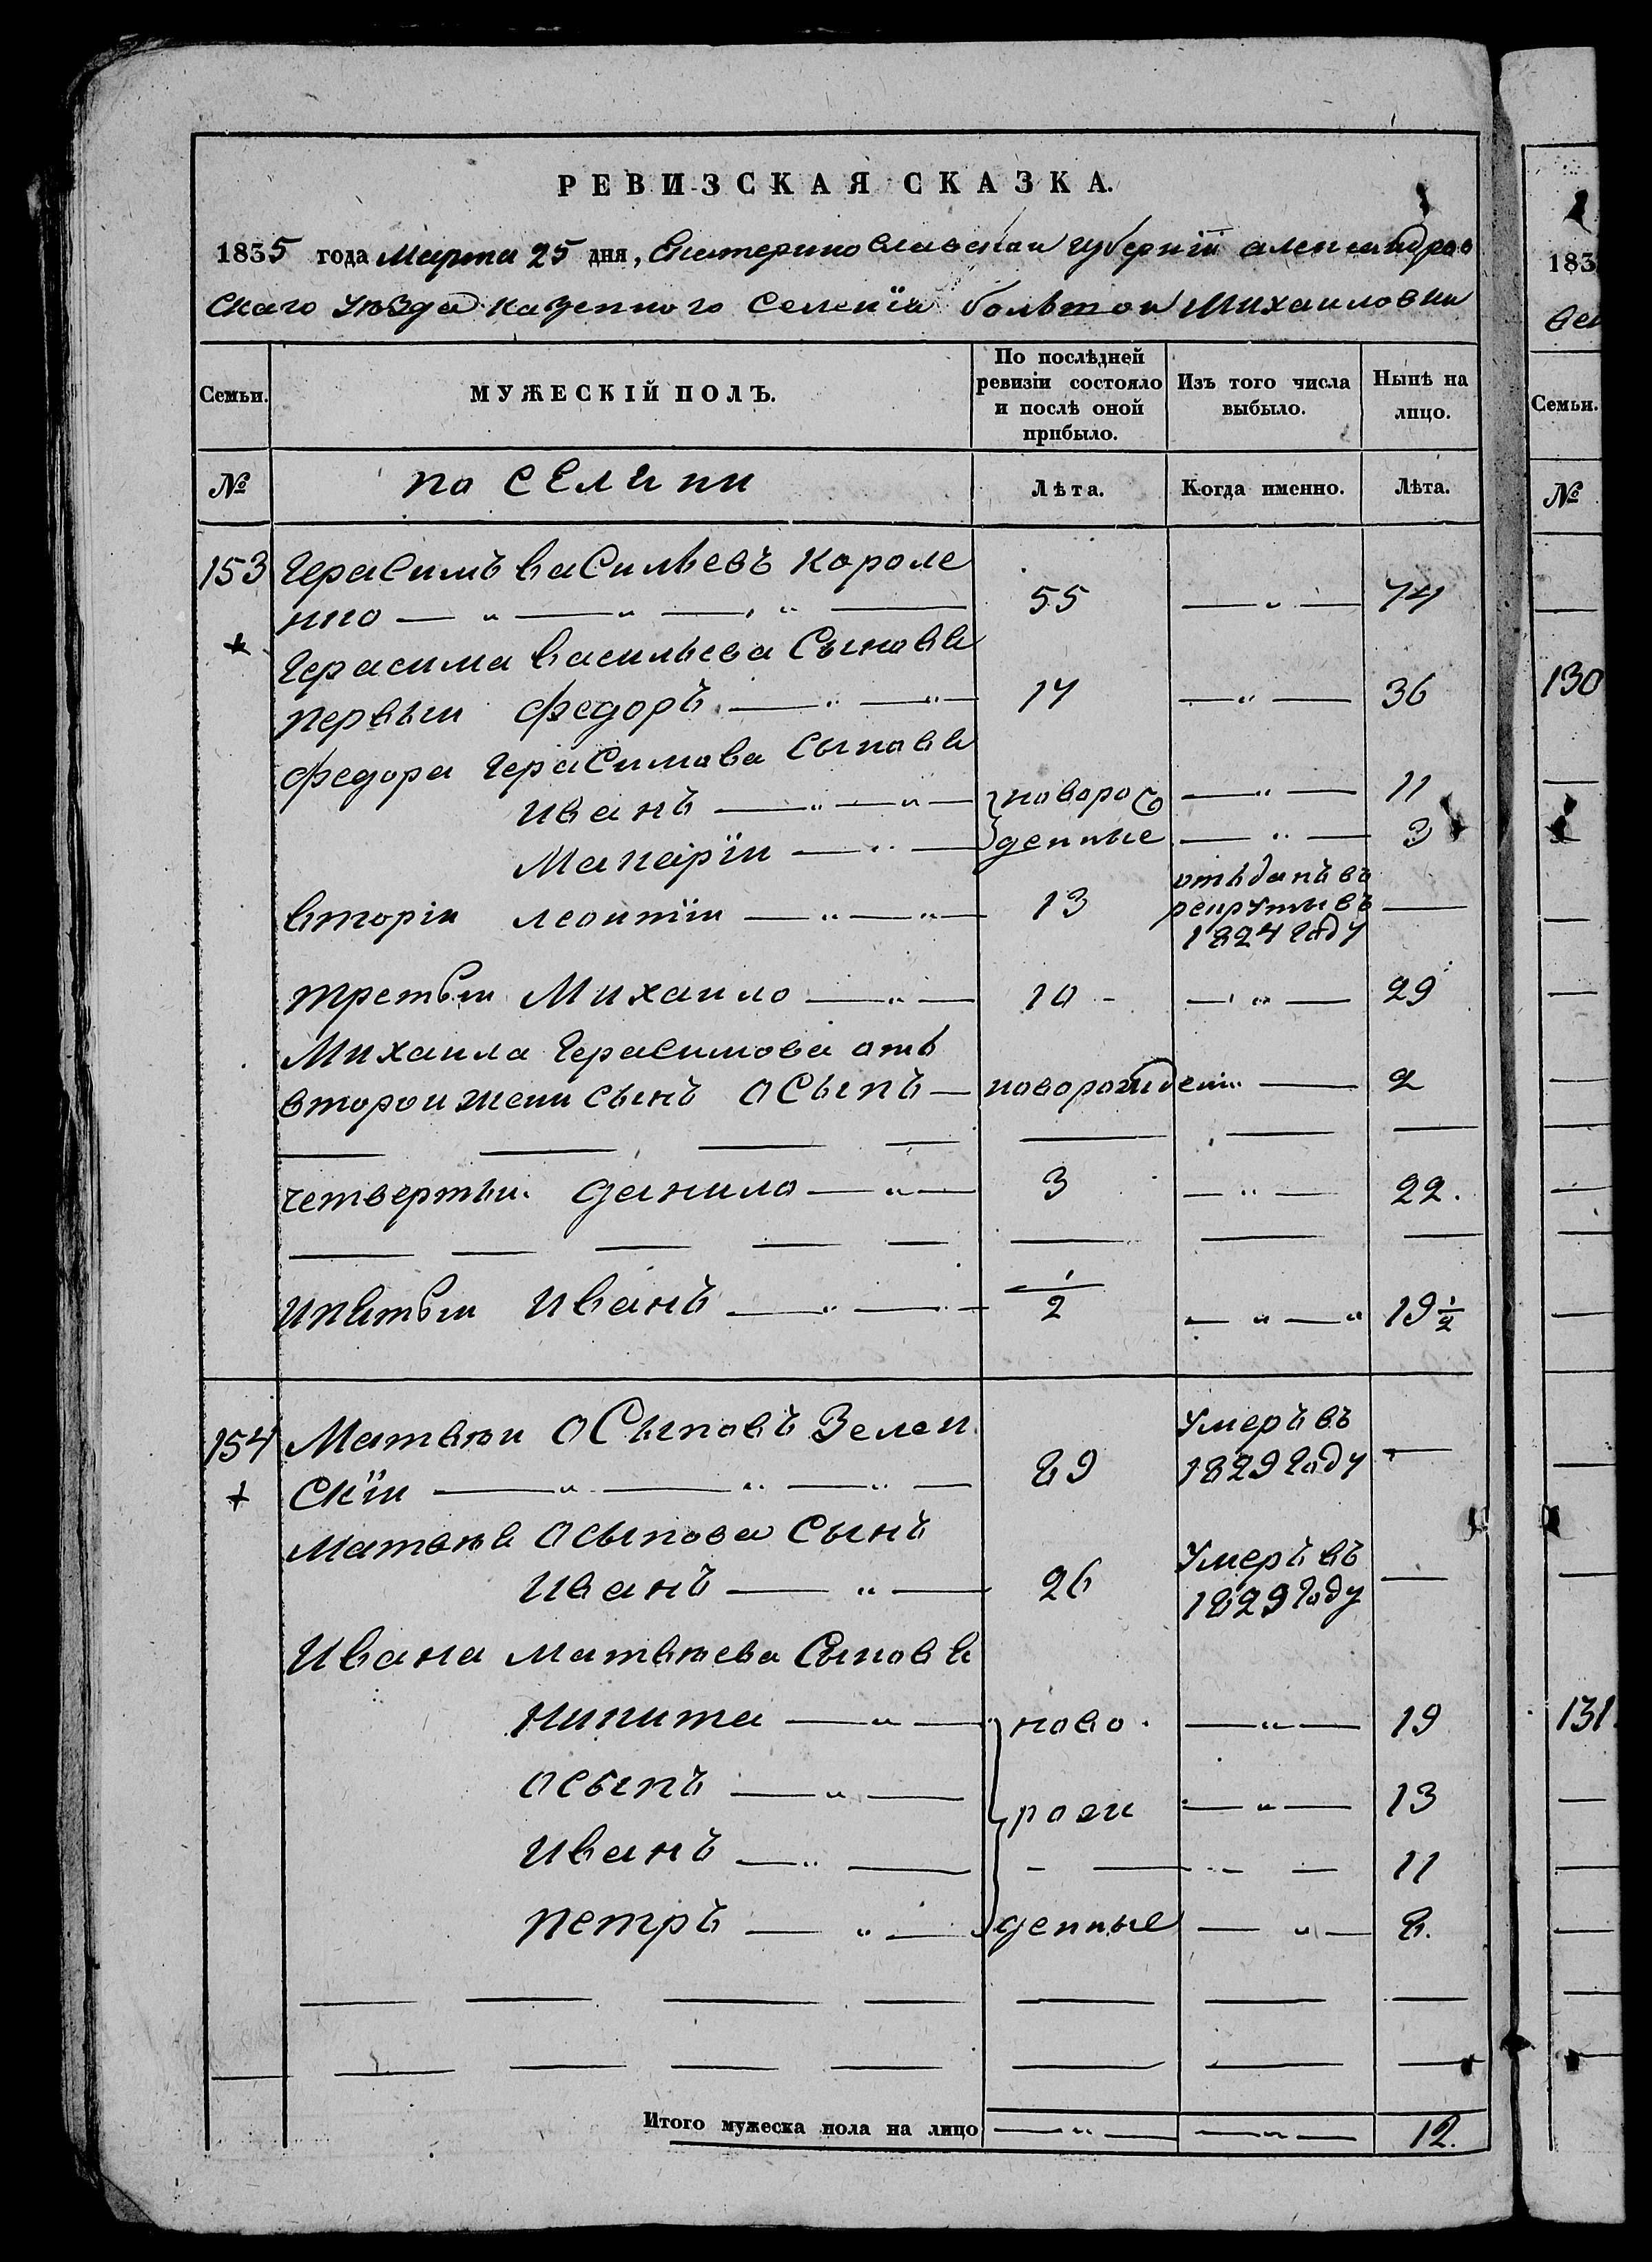 РЕВИЗСКАЯ СКАЗКА.
1835 года Марта 25 дня, Екатеринославскаи губернїи александров
скаго уѣзда казенного селенїа большои Михаиловки
Семьи.
МУЖЕСКІЙ ПОЛЪ.
По послѣдней ревизіи состояло и послѣ оной прибыло.
Изъ того числа выбыло.
Нынѣ на лицо.
№
Лѣта.
Когда именно.
Лѣта.
153 Герасимъ васильевъ Короле
нко 55 74
Герасима васильева Сынова
первыи федоръ 17 36
федора Герасимова Сынова
иванъ новорож 11
Макарїи денные 3
вторіи леонтїи 13 отъданъ въ рекруты въ 1824 году
третьи Михаило 10 29
Михаила Герасимова отъ
второи жени сынъ осыпъ новорожден 2
четвертыи данило 3 22.
ипятыи иванъ 1/2 19 1/2
154 Матвѣи осыповъ Зелен
Скїи 89 умеръ въ 1829 году
Матвѣа осыпова Сынъ
иванъ 26 умеръ въ 1829 году
Ивана Матвѣева Сынова
никита ново 19
осыпъ рож 13
иванъ 11
петръ денные 8.
Итого мужеска пола на лицо 12.
183
№
130
131
Семьи.